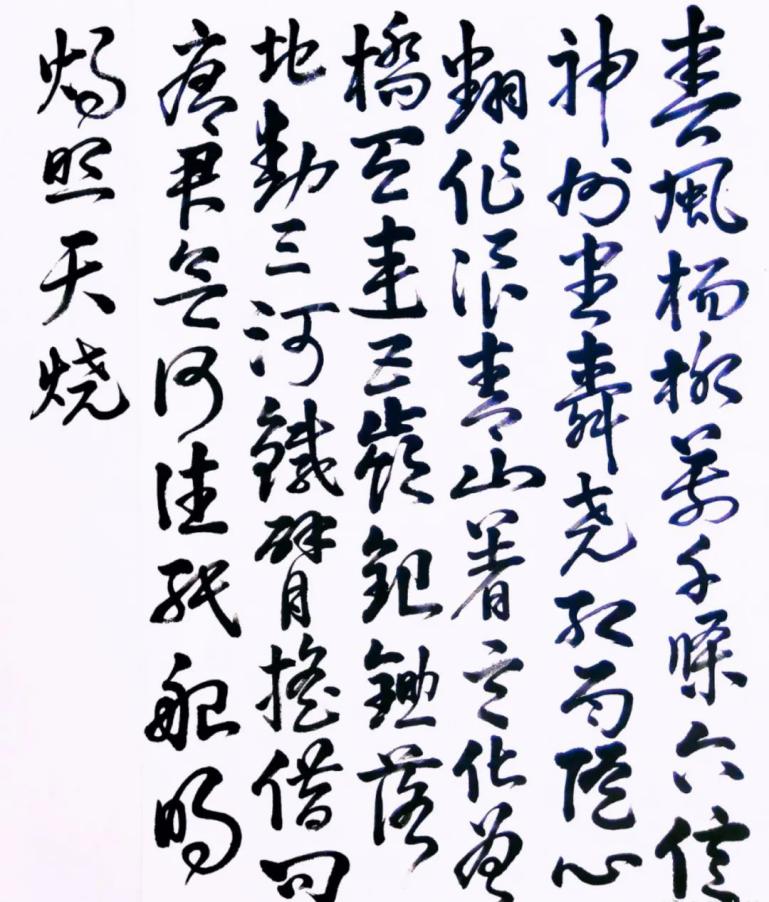 春風楊柳萬千條六億
神州盡舜尧红雨随心
翻作浪青山着意化為
橋天連五嶺銀鋤落
地動三河鐵臂搖借問
瘟君欲何往纸船明
烛照天烧